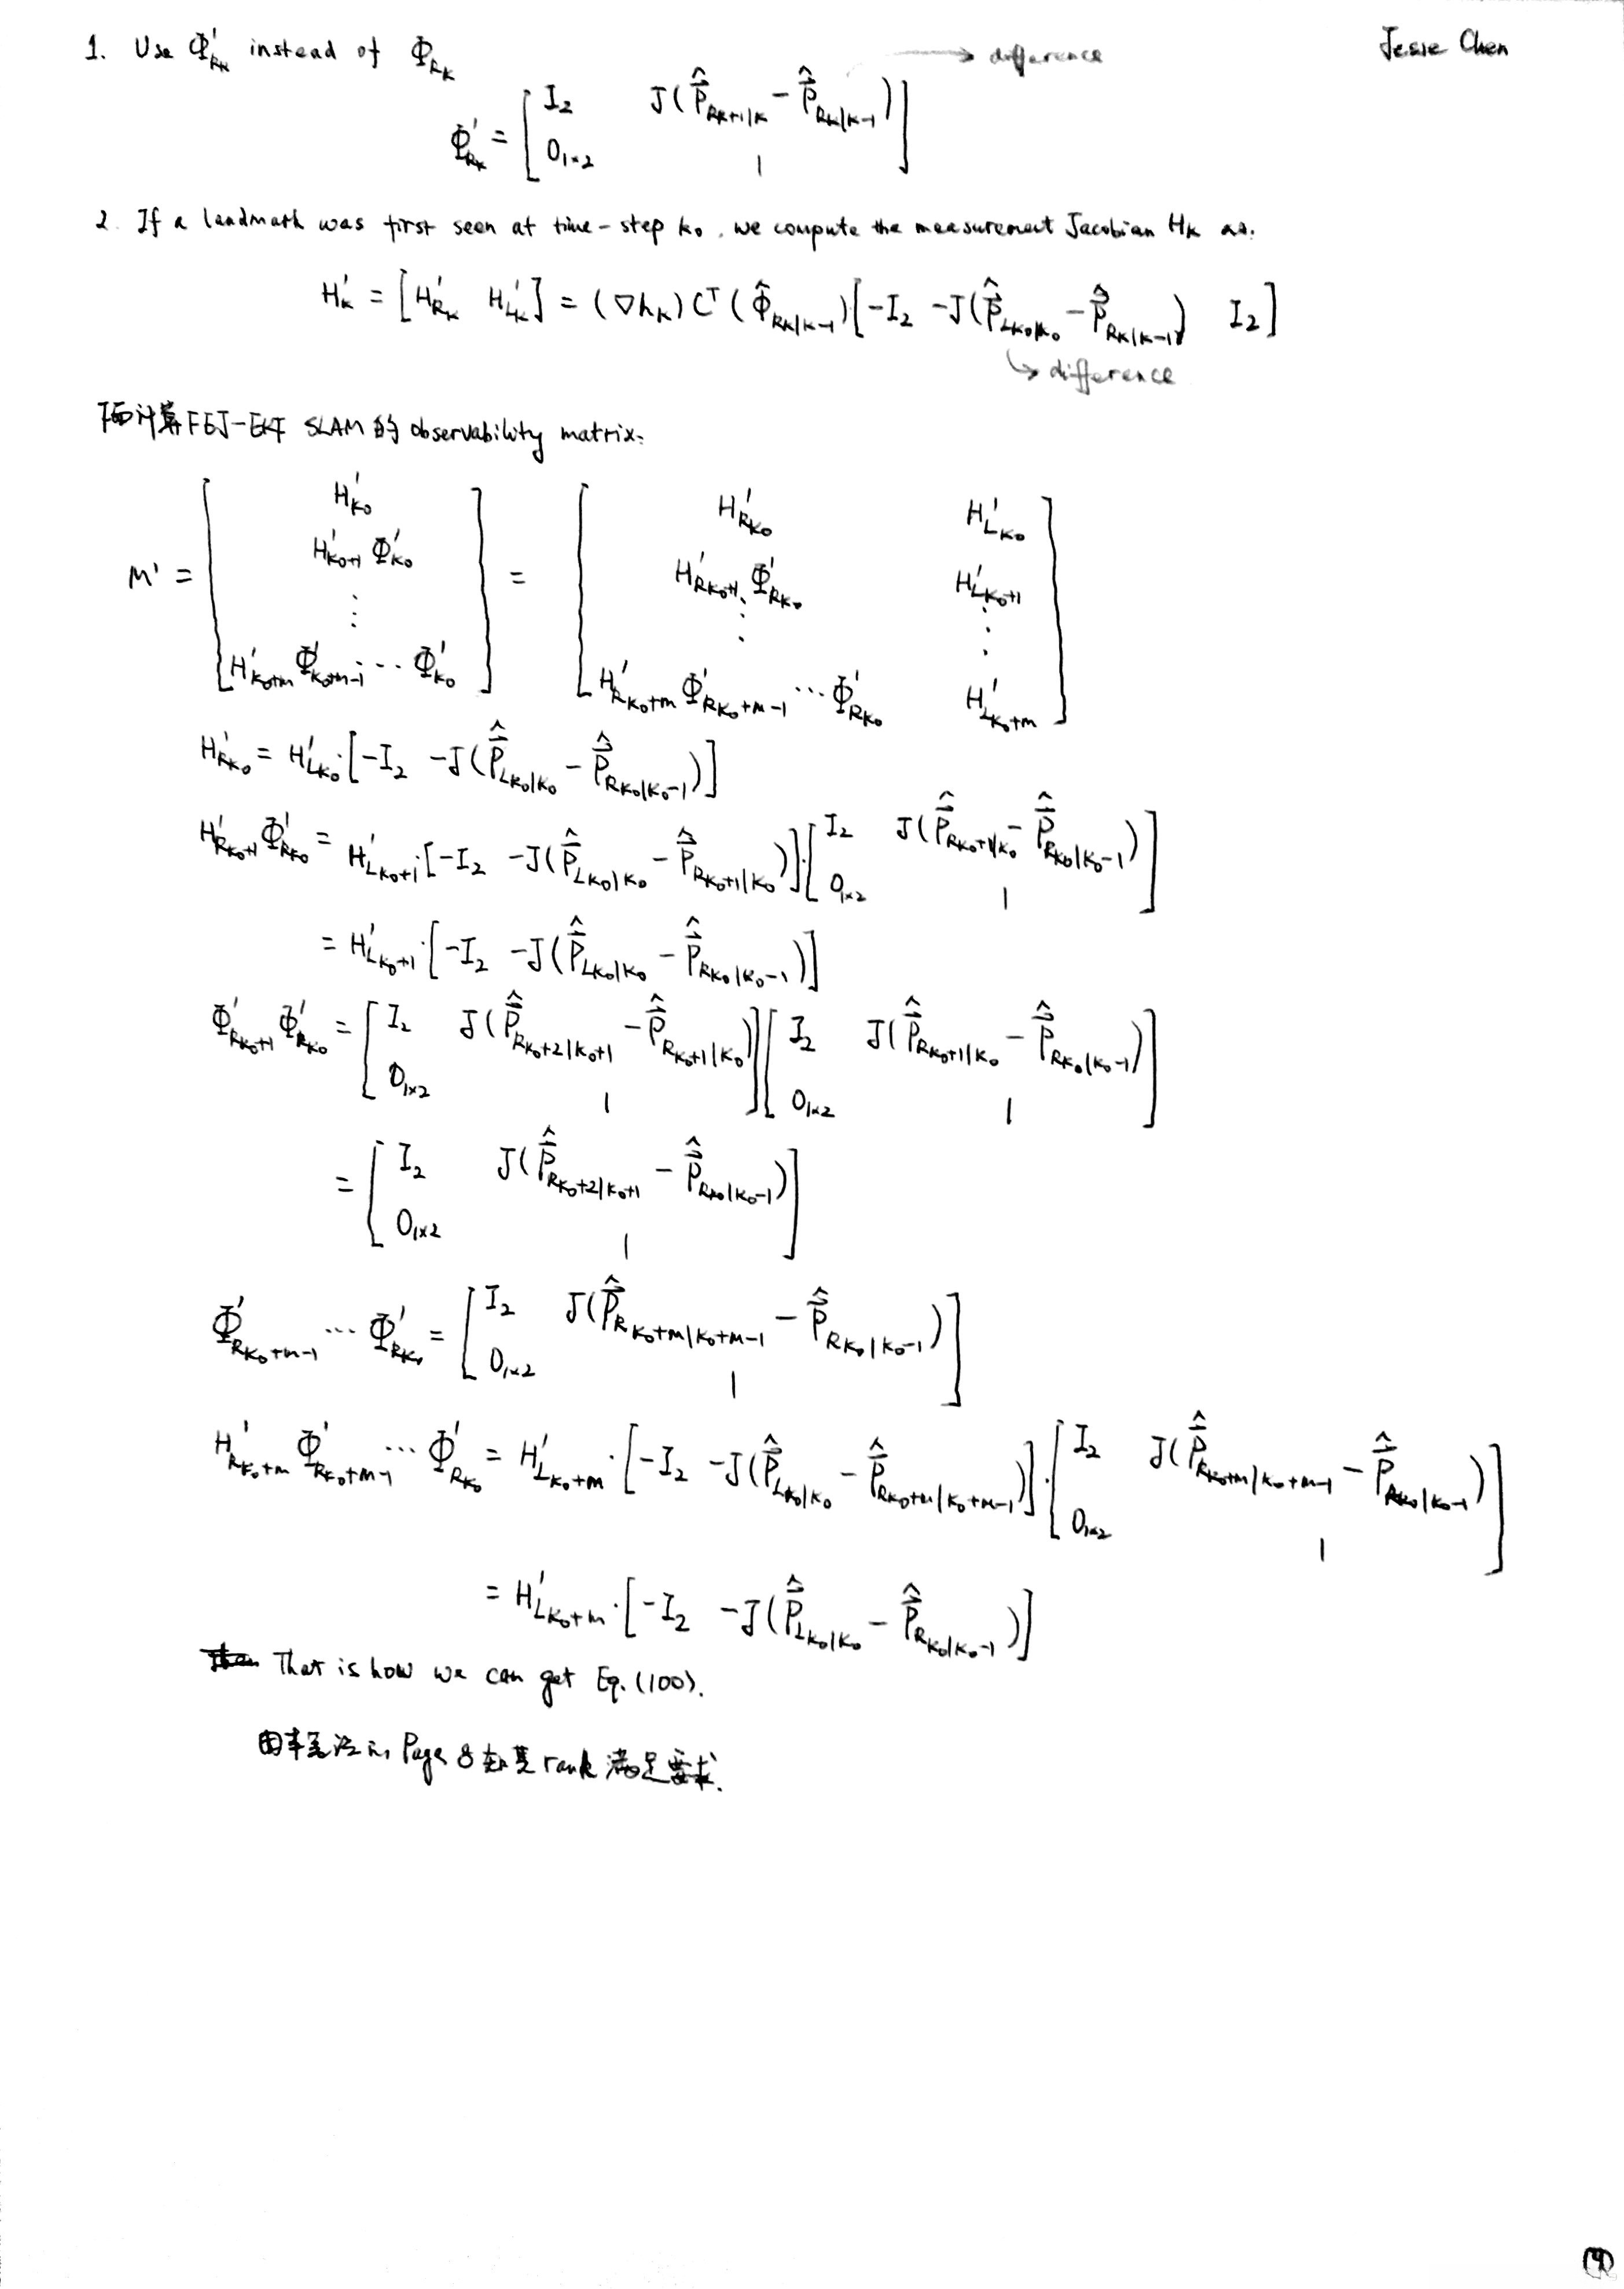 Jessie Chen
1. Use Φ'_{R_K} instead of Φ_{R_K} → difference
Φ'_{R_K} = [ I₂  J(P̂_{R_{K+1|K}} − P̂_{R_{K|K-1}}) ; 0_{1×2}  1 ]
2. If a landmark was first seen at time-step k₀, we compute the measurement Jacobian H_K as:
H'_K = [H'_{R_K}  H'_{L_K}] = (∇h_K) Cᵀ(Φ̂_{R_{K|K-1}}) [−I₂  −J(P̂_{L_{K₀|K₀}} − P̂_{R_{K|K-1}})  I₂]
↳ difference
下面计算FEJ-EKF SLAM的observability matrix:
M' = [ H'_{K₀} ; H'_{K₀+1} Φ'_{K₀} ; ⋮ ; H'_{K₀+m} Φ'_{K₀+m-1} ⋯ Φ'_{K₀} ] = [ H'_{R_{K₀}}  H'_{L_{K₀}} ; H'_{R_{K₀+1}} Φ'_{R_{K₀}}  H'_{L_{K₀+1}} ; ⋮  ⋮ ; H'_{R_{K₀+m}} Φ'_{R_{K₀+m-1}} ⋯ Φ'_{R_{K₀}}  H'_{L_{K₀+m}} ]
H'_{R_{K₀}} = H'_{L_{K₀}} · [−I₂  −J(P̂_{L_{K₀|K₀}} − P̂_{R_{K₀|K₀-1}})]
H'_{R_{K₀+1}} Φ'_{R_{K₀}} = H'_{L_{K₀+1}} · [−I₂  −J(P̂_{L_{K₀|K₀}} − P̂_{R_{K₀+1|K₀}})] · [ I₂  J(P̂_{R_{K₀+1|K₀}} − P̂_{R_{K₀|K₀-1}}) ; 0_{1×2}  1 ]
= H'_{L_{K₀+1}} · [−I₂  −J(P̂_{L_{K₀|K₀}} − P̂_{R_{K₀|K₀-1}})]
Φ'_{R_{K₀+1}} Φ'_{R_{K₀}} = [ I₂  J(P̂_{R_{K₀+2|K₀+1}} − P̂_{R_{K₀+1|K₀}}) ; 0_{1×2}  1 ] [ I₂  J(P̂_{R_{K₀+1|K₀}} − P̂_{R_{K₀|K₀-1}}) ; 0_{1×2}  1 ]
= [ I₂  J(P̂_{R_{K₀+2|K₀+1}} − P̂_{R_{K₀|K₀-1}}) ; 0_{1×2}  1 ]
Φ'_{R_{K₀+m-1}} ⋯ Φ'_{R_{K₀}} = [ I₂  J(P̂_{R_{K₀+m|K₀+m-1}} − P̂_{R_{K₀|K₀-1}}) ; 0_{1×2}  1 ]
H'_{R_{K₀+m}} Φ'_{R_{K₀+m-1}} ⋯ Φ'_{R_{K₀}} = H'_{L_{K₀+m}} · [−I₂  −J(P̂_{L_{K₀|K₀}} − P̂_{R_{K₀+m|K₀+m-1}})] · [ I₂  J(P̂_{R_{K₀+m|K₀+m-1}} − P̂_{R_{K₀|K₀-1}}) ; 0_{1×2}  1 ]
= H'_{L_{K₀+m}} · [−I₂  −J(P̂_{L_{K₀|K₀}} − P̂_{R_{K₀|K₀-1}})]
That is how we can get Eq.(100).
由本笔记 in Page 8 知其 rank 满足要求.